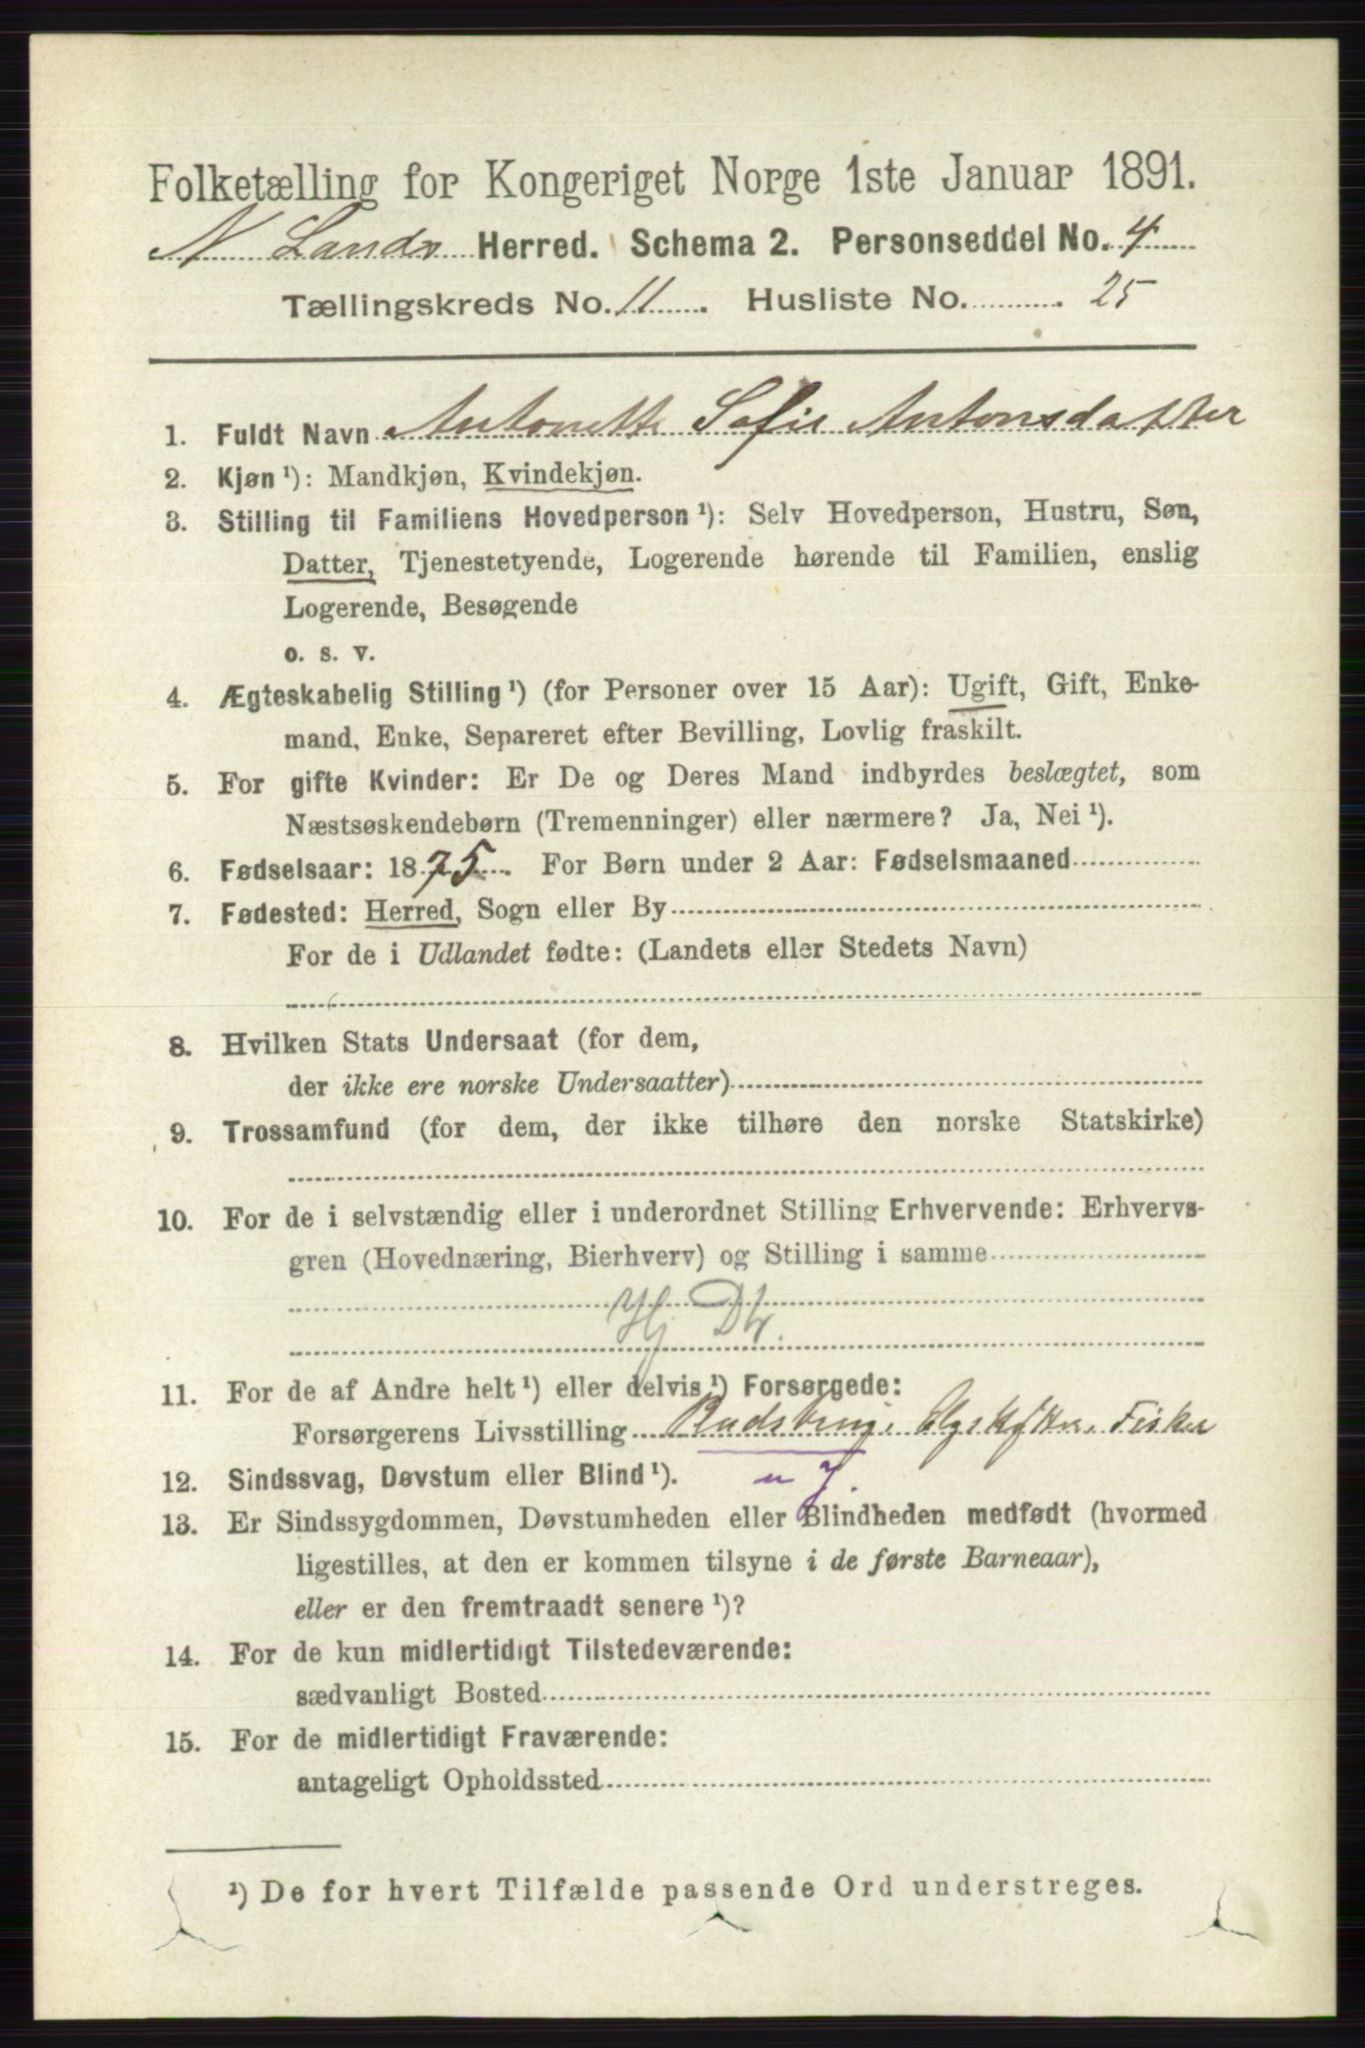 Folketælling for Kongeriget Norge 1ste Januar 1891.
N Lands Herred. Schema 2. Personseddel No. 4
Tællingskreds No. 11. Husliste No. 25
1. Fuldt Navn Antonette Sofie Antonsdatter
2. Kjøn ¹): Mandkjøn, Kvindekjøn.
3. Stilling til Familiens Hovedperson ¹): Selv Hovedperson, Hustru, Søn,
Datter, Tjenestetyende, Logerende hørende til Familien, enslig
Logerende, Besøgende
o. s. v.
4. Ægteskabelig Stilling ¹) (for Personer over 15 Aar): Ugift, Gift, Enke-
mand, Enke, Separeret efter Bevilling, Lovlig fraskilt.
5. For gifte Kvinder: Er De og Deres Mand indbyrdes beslægtet, som
Næstsøskendebørn (Tremenninger) eller nærmere? Ja, Nei ¹).
6. Fødselsaar: 1875. For Børn under 2 Aar: Fødselsmaaned
7. Fødested: Herred, Sogn eller By
For de i Udlandet fødte: (Landets eller Stedets Navn)
8. Hvilken Stats Undersaat (for dem,
der ikke ere norske Undersaatter)
9. Trossamfund (for dem, der ikke tilhøre den norske Statskirke)
10. For de i selvstændig eller i underordnet Stilling Erhvervende: Erhvervs-
gren (Hovednæring, Bierhverv) og Stilling i samme
Hj. Dt.
11. For de af Andre helt ¹) eller delvis ¹) Forsørgede:
Forsørgerens Livsstilling Fisker
12. Sindssvag, Døvstum eller Blind ¹).
13. Er Sindssygdommen, Døvstumheden eller Blindheden medfødt (hvormed
ligestilles, at den er kommen tilsyne i de første Barneaar),
eller er den fremtraadt senere ¹)?
14. For de kun midlertidigt Tilstedeværende:
sædvanligt Bosted
15. For de midlertidigt Fraværende:
antageligt Opholdssted
¹) De for hvert Tilfælde passende Ord understreges.